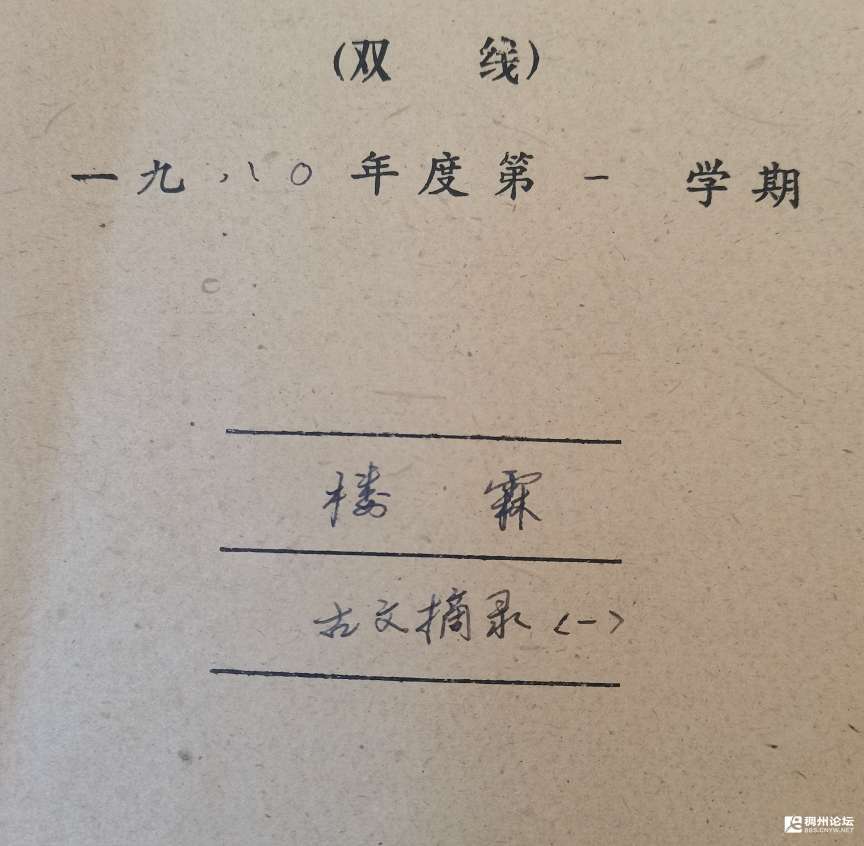 (双 线)
一九八〇年度第一学期
楼 霖
古文摘录<一>
稠州论坛
BBS.CNYW.NET